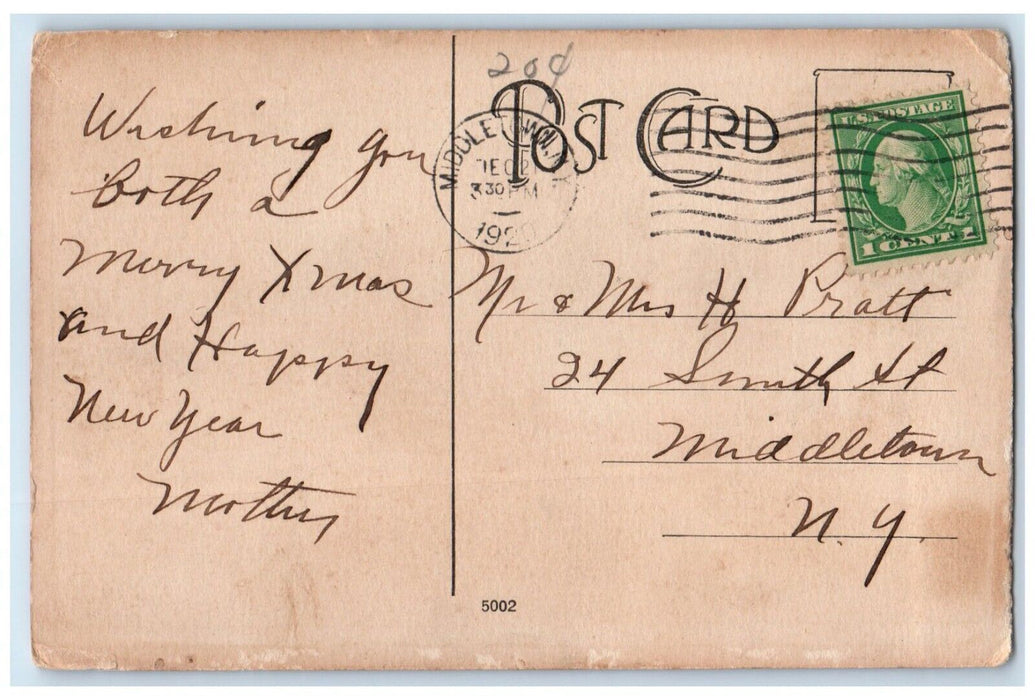 Wishing you
both a
Merry Xmas
and Happy
New Year
Mother
204
POST CARD
MIDDLETOWN, N.Y.
DEC 2
3 30 PM
192
U.S. POSTAGE
1 CENT 1
Mr & Mrs H Pratt
24 Smith St
Middletown
N. Y.
5002